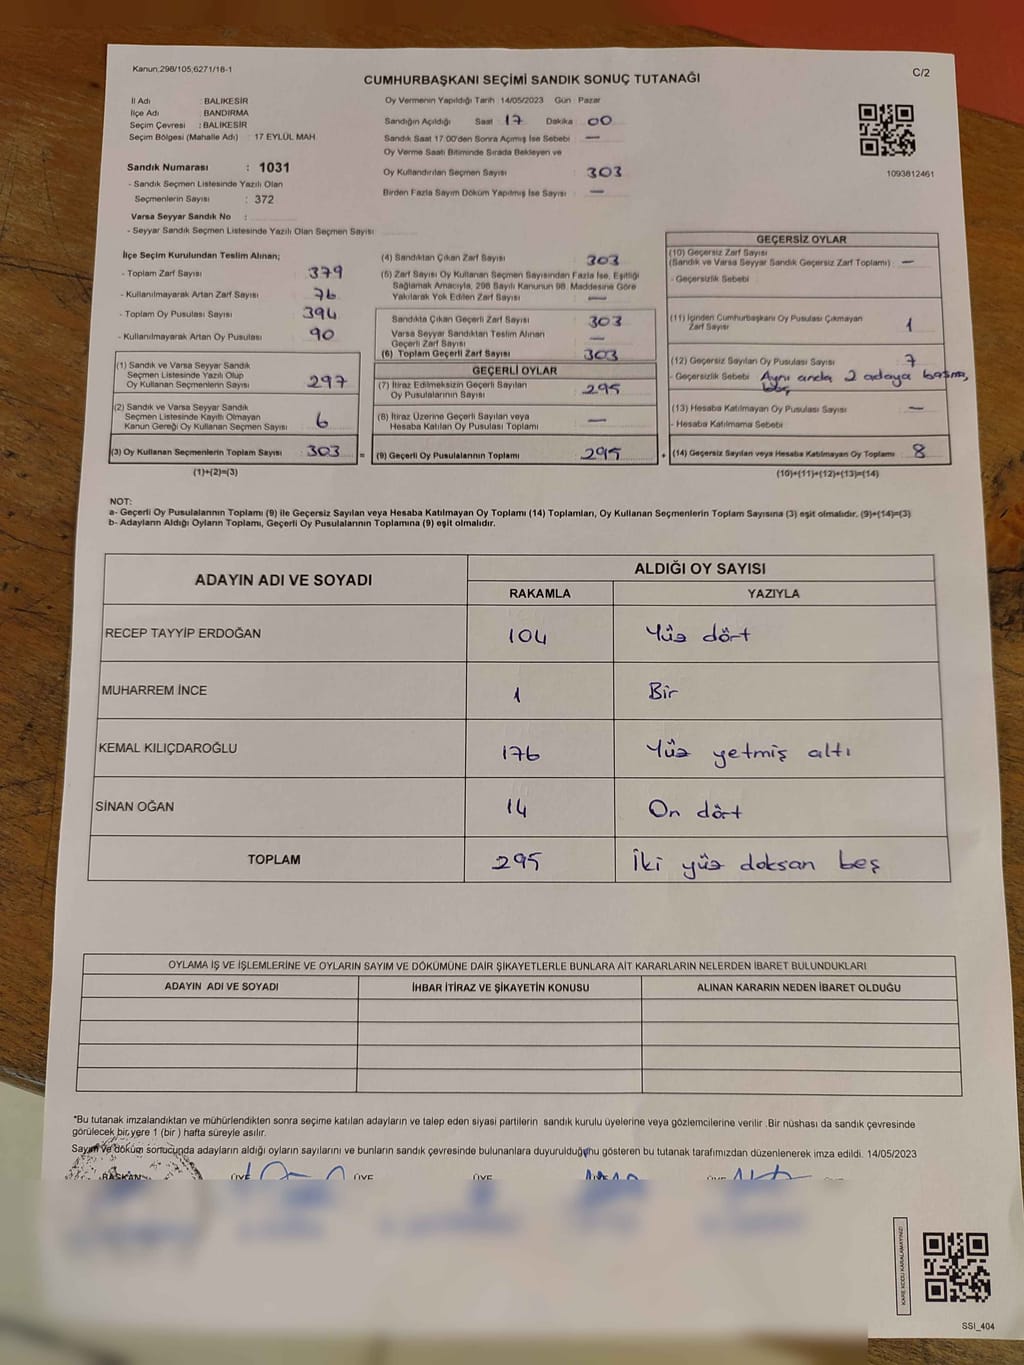 Kanun,298/105,6271/18-1
CUMHURBAŞKANI SEÇİMİ SANDIK SONUÇ TUTANAĞI
C/2
İl Adı : BALIKESİR
İlçe Adı : BANDIRMA
Seçim Çevresi : BALIKESİR
Seçim Bölgesi (Mahalle Adı) : 17 EYLÜL MAH.
Sandık Numarası : 1031
- Sandık Seçmen Listesinde Yazılı Olan
Seçmenlerin Sayısı : 372
Varsa Seyyar Sandık No :
- Seyyar Sandık Seçmen Listesinde Yazılı Olan Seçmen Sayısı
Oy Vermenin Yapıldığı Tarih 14/05/2023 Gün : Pazar
Sandığın Açıldığı Saat 17 Dakika 00
Sandık Saat 17:00'den Sonra Açımış İse Sebebi : —
Oy Verme Saati Bitiminde Sırada Bekleyen ve
Oy Kullandırılan Seçmen Sayısı : 303
Birden Fazla Sayım Döküm Yapılmış İse Sayısı : —
1093812461
İlçe Seçim Kurulundan Teslim Alınan;
- Toplam Zarf Sayısı : 379
- Kullanılmayarak Artan Zarf Sayısı : 76
- Toplam Oy Pusulası Sayısı : 394
- Kullanılmayarak Artan Oy Pusulası : 90
(1) Sandık ve Varsa Seyyar Sandık
Seçmen Listesinde Yazılı Olup
Oy Kullanan Seçmenlerin Sayısı : 297
(2) Sandık ve Varsa Seyyar Sandık
Seçmen Listesinde Kayıtlı Olmayan
Kanun Gereği Oy Kullanan Seçmen Sayısı : 6
(3) Oy Kullanan Seçmenlerin Toplam Sayısı : 303
(1)+(2)=(3)
(4) Sandıktan Çıkan Zarf Sayısı : 303
(5) Zarf Sayısı Oy Kullanan Seçmen Sayısından Fazla İse, Eşitliği
Sağlamak Amacıyla, 298 Sayılı Kanunun 98. Maddesine Göre
Yakılarak Yok Edilen Zarf Sayısı : —
Sandıkta Çıkan Geçerli Zarf Sayısı : 303
Varsa Seyyar Sandıktan Teslim Alınan
Geçerli Zarf Sayısı : —
(6) Toplam Geçerli Zarf Sayısı : 303
GEÇERLİ OYLAR
(7) İtiraz Edilmeksizin Geçerli Sayılan
Oy Pusulalarının Sayısı : 295
(8) İtiraz Üzerine Geçerli Sayılan veya
Hesaba Katılan Oy Pusulası Toplamı : —
= (9) Geçerli Oy Pusulalarının Toplamı : 295
GEÇERSİZ OYLAR
(10) Geçersiz Zarf Sayısı
(Sandık ve Varsa Seyyar Sandık Geçersiz Zarf Toplamı) : —
- Geçersizlik Sebebi
(11) İçinden Cumhurbaşkanı Oy Pusulası Çıkmayan
Zarf Sayısı : 1
(12) Geçersiz Sayılan Oy Pusulası Sayısı : 7
- Geçersizlik Sebebi Aynı anda 2 adaya basma,
boş
(13) Hesaba Katılmayan Oy Pusulası Sayısı : —
- Hesaba Katılmama Sebebi
+ (14) Geçersiz Sayılan veya Hesaba Katılmayan Oy Toplamı : 8
(10)+(11)+(12)+(13)=(14)
NOT:
a- Geçerli Oy Pusulalarının Toplamı (9) ile Geçersiz Sayılan veya Hesaba Katılmayan Oy Toplamı (14) Toplamları, Oy Kullanan Seçmenlerin Toplam Sayısına (3) eşit olmalıdır. (9)+(14)=(3)
b- Adayların Aldığı Oyların Toplamı, Geçerli Oy Pusulalarının Toplamına (9) eşit olmalıdır.
ADAYIN ADI VE SOYADI ALDIĞI OY SAYISI
RAKAMLA YAZIYLA
RECEP TAYYİP ERDOĞAN 104 Yüz dört
MUHARREM İNCE 1 Bir
KEMAL KILIÇDAROĞLU 176 Yüz yetmiş altı
SİNAN OĞAN 14 On dört
TOPLAM 295 İki yüz doksan beş
OYLAMA İŞ VE İŞLEMLERİNE VE OYLARIN SAYIM VE DÖKÜMÜNE DAİR ŞİKAYETLERLE BUNLARA AİT KARARLARIN NELERDEN İBARET BULUNDUKLARI
ADAYIN ADI VE SOYADI İHBAR İTİRAZ VE ŞİKAYETİN KONUSU ALINAN KARARIN NEDEN İBARET OLDUĞU
*Bu tutanak imzalandıktan ve mühürlendikten sonra seçime katılan adayların ve talep eden siyasi partilerin sandık kurulu üyelerine veya gözlemcilerine verilir .Bir nüshası da sandık çevresinde
görülecek bir yere 1 (bir ) hafta süreyle asılır.
Sayım ve döküm sonucunda adayların aldığı oyların sayılarını ve bunların sandık çevresinde bulunanlara duyurulduğunu gösteren bu tutanak tarafımızdan düzenlenerek imza edildi. 14/05/2023
BAŞKAN ÜYE ÜYE ÜYE
KARE KODU KARALAMAYINIZ!
SSI_404